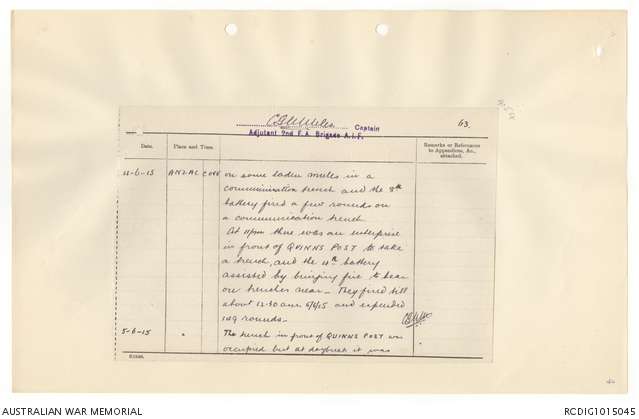 C G N Miles Captain
63.
Adjutant 2nd F.A. Brigade A.I.F.
Date. Place and Time. Remarks or References to Appendices, &c., attached.
4-6-15 ANZAC COVE on some laden mules in a
communication trench and the 8th
battery fired a few rounds on
a communication trench
At 11pm there was an enterprise
in front of QUINNS POST to take
a trench, and the 4th battery
assisted by bringing fire to bear
on trenches near. They fired till
about 12-30 am 5/6/15 and expended
129 rounds.
5-6-15 " The trench in front of QUINNS POST was
occupied but at daybreak it was
AUSTRALIAN WAR MEMORIAL
RCDIG1015045